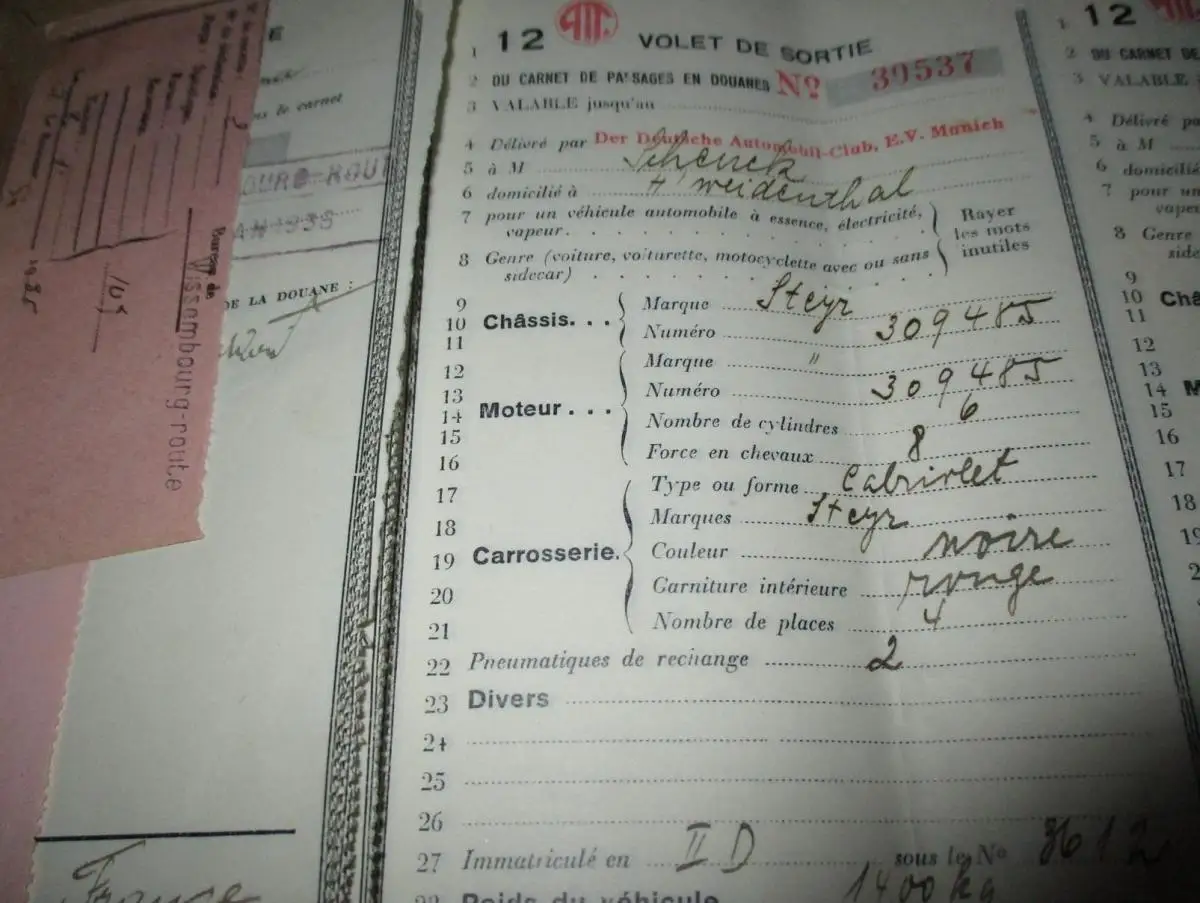 12 VOLET DE SORTIE
1
2 DU CARNET DE PASSAGES EN DOUANES No 30537
3 VALABLE jusqu'au
4 Délivré par Der Deutsche Automobil-Club, E.V. Munich
5 à M Schenck
6 domicilié à Weidenthal
7 pour un véhicule automobile à essence, électricité,
vapeur.
Rayer
les mots
inutiles
8 Genre (voiture, voiturette, motocyclette avec ou sans
sidecar)
9 Châssis... Marque Steyr
10 Numéro 309485
11
12 Moteur... Marque "
13 Numéro 309485
14 Nombre de cylindres 6
15 Force en chevaux 8
16
17 Carrosserie. Type ou forme Cabriolet
18 Marques Steyr
19 Couleur noire
20 Garniture intérieure rouge
21 Nombre de places 4
22 Pneumatiques de rechange 2
23 Divers
24
25
26
27 Immatriculé en II D sous le No 3612
Poids du véhicule 1400 kg
le carnet
DE LA DOUANE :
Bureau de
Wissembourg-route
France
12
1
2 DU CARNET DE
3 VALABLE
4 Délivré par
5 à M
6 domicilié
7 pour un
vapeur
8 Genre
9
10 Châ
11
12
13
14 M
15
16
17
18